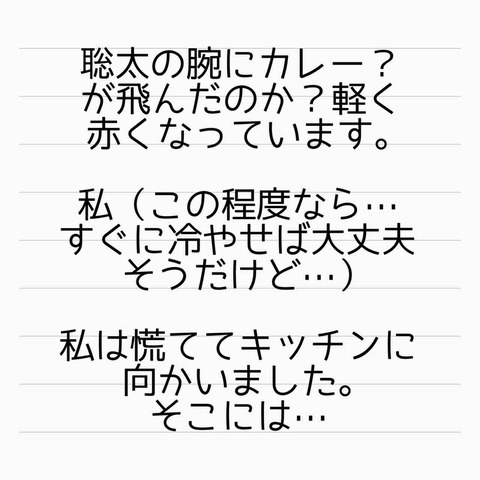 聡太の腕にカレー？
が飛んだのか？軽く
赤くなっています。
私（この程度なら…
すぐに冷やせば大丈夫
そうだけど…）
私は慌ててキッチンに
向かいました。
そこには…